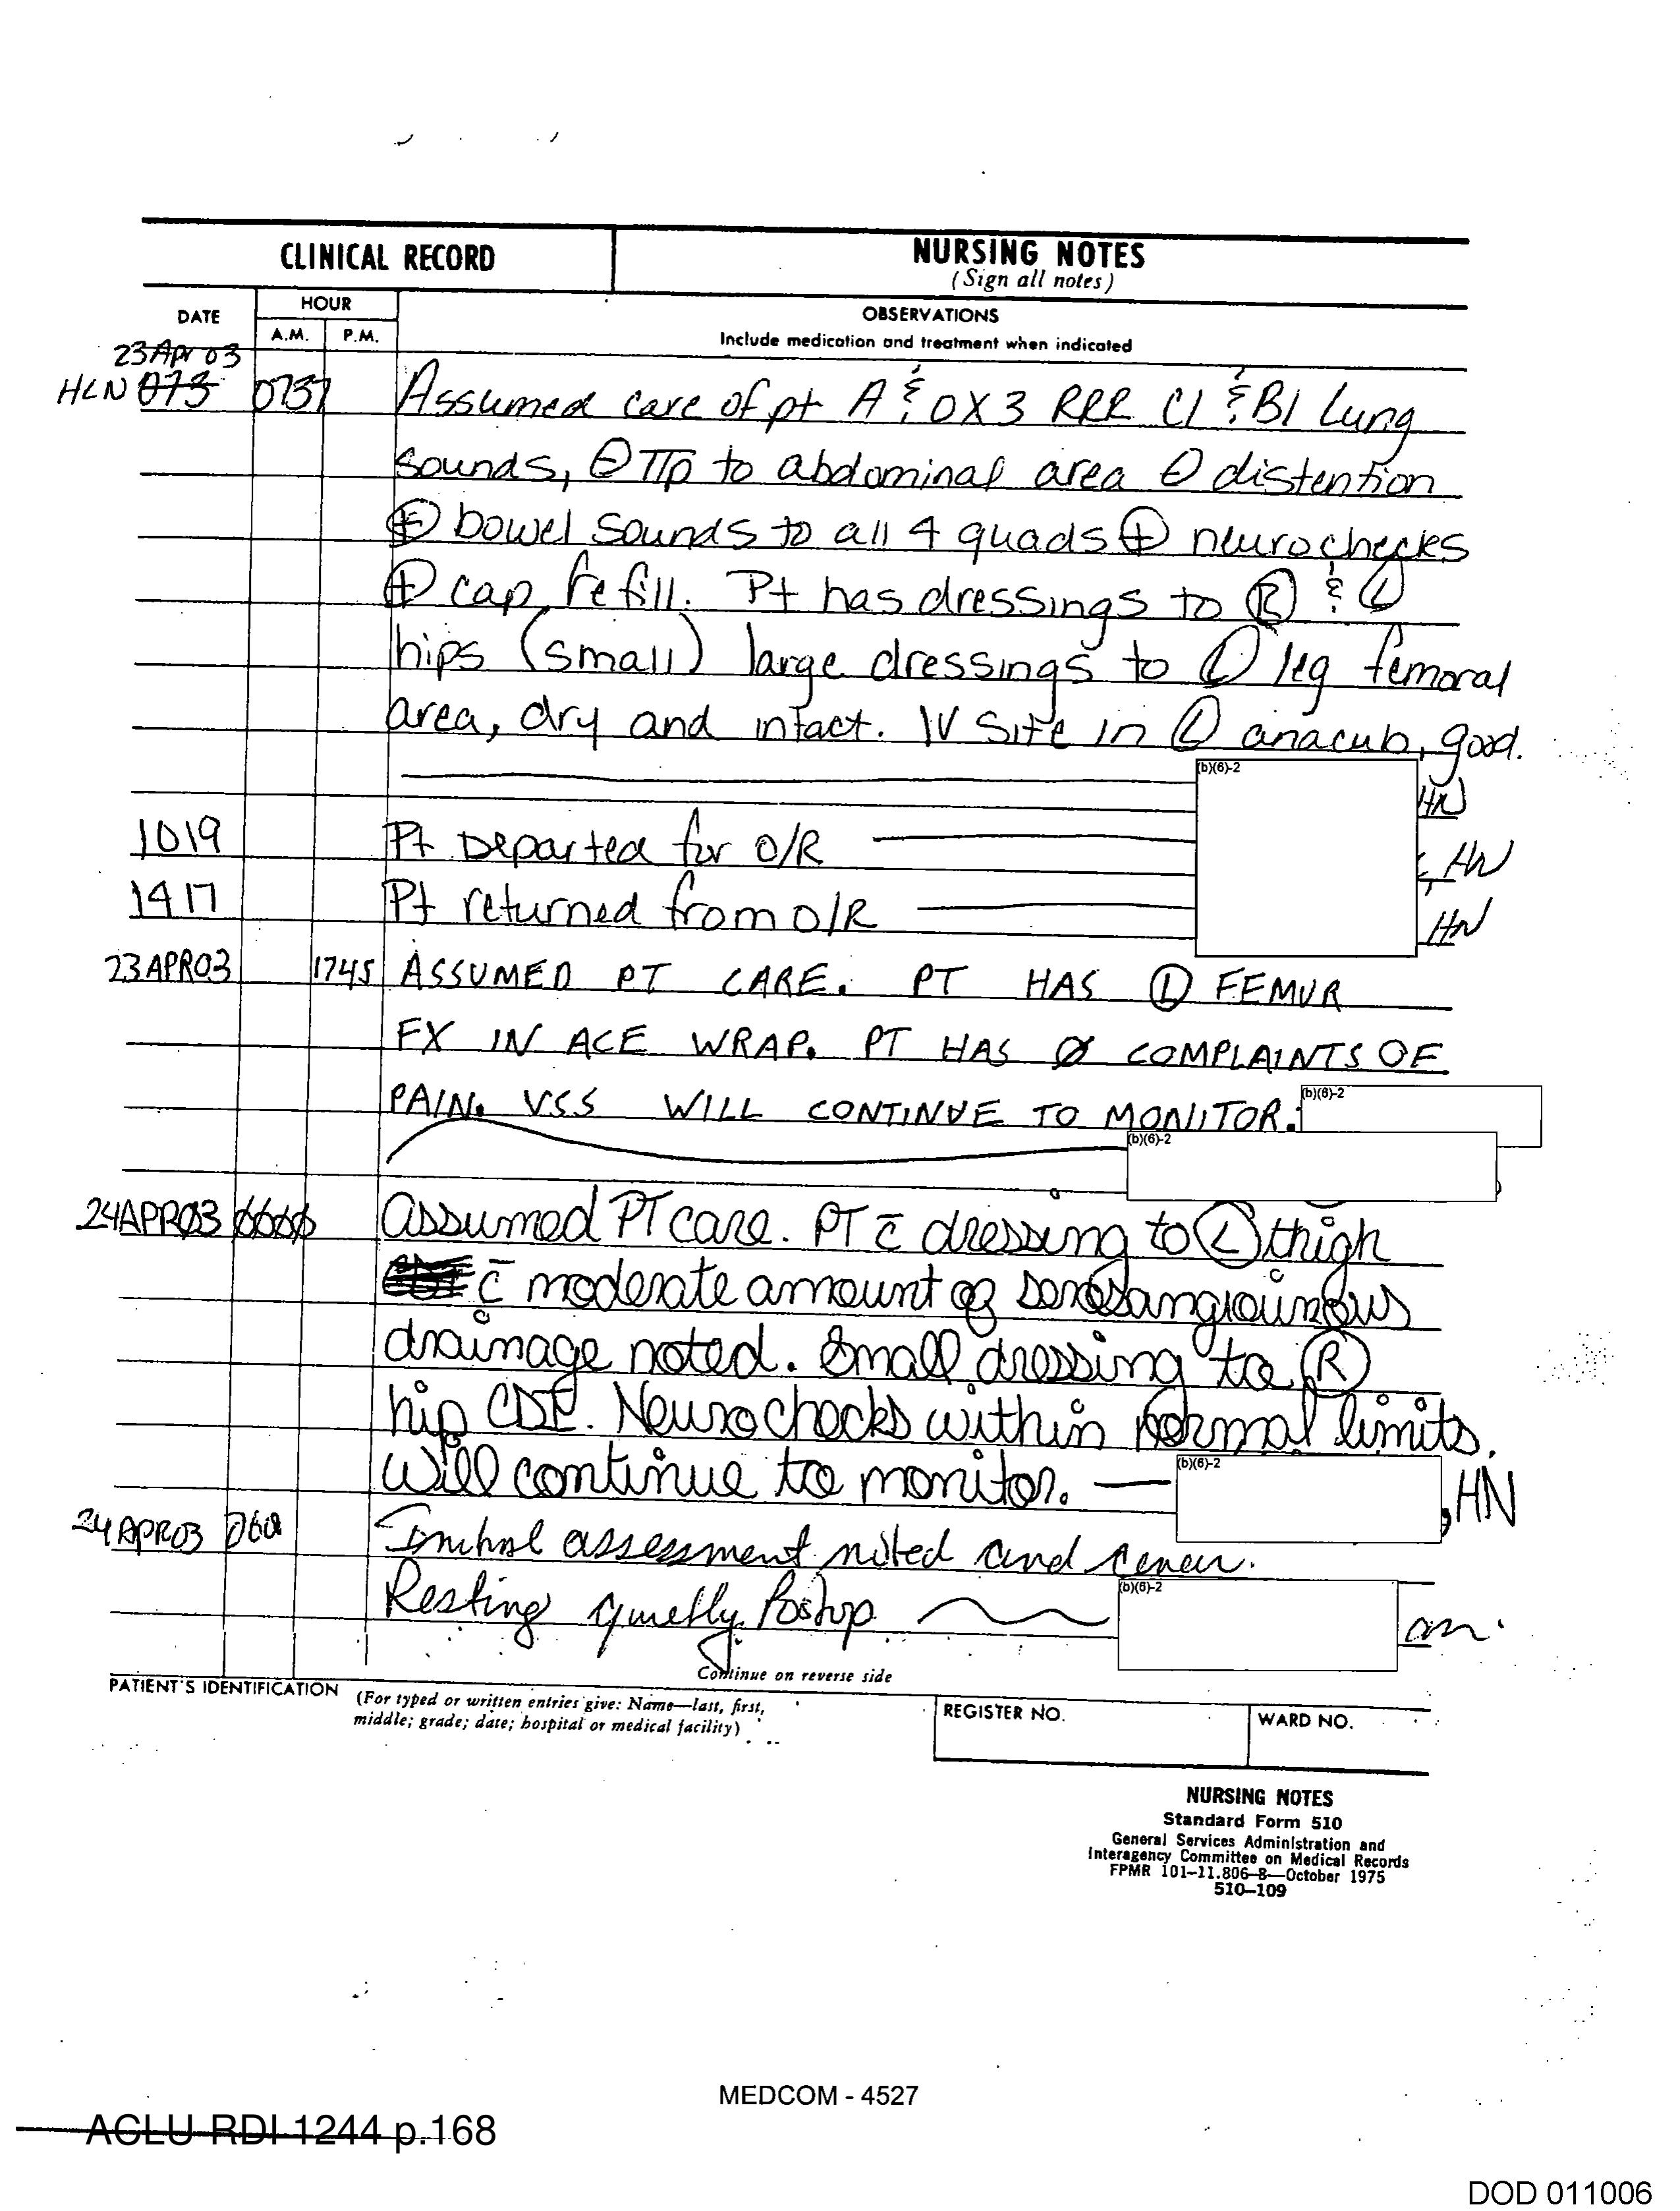 CLINICAL RECORD
NURSING NOTES
(Sign all notes)
DATE
HOUR
A.M. P.M.
OBSERVATIONS
Include medication and treatment when indicated
23 Apr 03
HLN 073 0737 Assumed care of pt A & OX3 RRR Cl & Bl Lung
sounds, ⊖ TTP to abdominal area ⊖ distention
⊕ bowel sounds to all 4 quads ⊕ neurochecks
⊕ cap refill. Pt has dressings to Ⓡ & Ⓛ
hips (small) large dressings to Ⓛ leg femoral
area, dry and intact. IV site in Ⓛ anacub, good.
(b)(6)-2
HN
1019 Pt Departed for O/R HN
1417 Pt returned from O/R HN
23APR03 1745 ASSUMED PT CARE. PT HAS Ⓛ FEMUR
FX IN ACE WRAP. PT HAS Ø COMPLAINTS OF
PAIN. VSS WILL CONTINUE TO MONITOR. (b)(6)-2
(b)(6)-2
24APR03 Assumed PT care. PT c̄ dressing to Ⓛ thigh
c̄ moderate amount of
drainage noted. Small dressing to Ⓡ
hip CDI. Neurochecks within normal limits.
Will continue to monitor. (b)(6)-2 , HN
24APR03 Initial assessment noted and
Resting quietly. Postop (b)(6)-2
Continue on reverse side
PATIENT'S IDENTIFICATION (For typed or written entries give: Name—last, first,
middle; grade; date; hospital or medical facility)
REGISTER NO.
WARD NO.
NURSING NOTES
Standard Form 510
General Services Administration and
Interagency Committee on Medical Records
FPMR 101-11.806-8—October 1975
510-109
MEDCOM - 4527
ACLU RDI 1244 p.168
DOD 011006